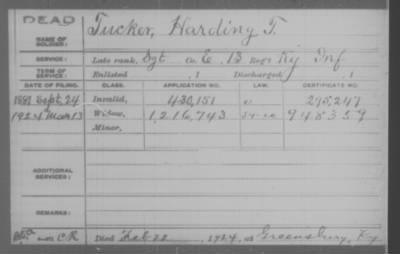 DEAD
NAME OF SOLDIER: Tucker, Harding T.
SERVICE: Late rank, Sgt Co. E, 13 Reg't Ky Inf
TERM OF SERVICE: Enlisted , 1 Discharged , 1
DATE OF FILING. CLASS. APPLICATION NO. LAW. CERTIFICATE NO.
1881 Sept, 24 Invalid, 430,151 295,247
1924 Mar 13 Widow, 1,216,743 948359
Minor,
ADDITIONAL SERVICES:
REMARKS:
C R Died Feb 22, 1924, at Greensburg, Ky